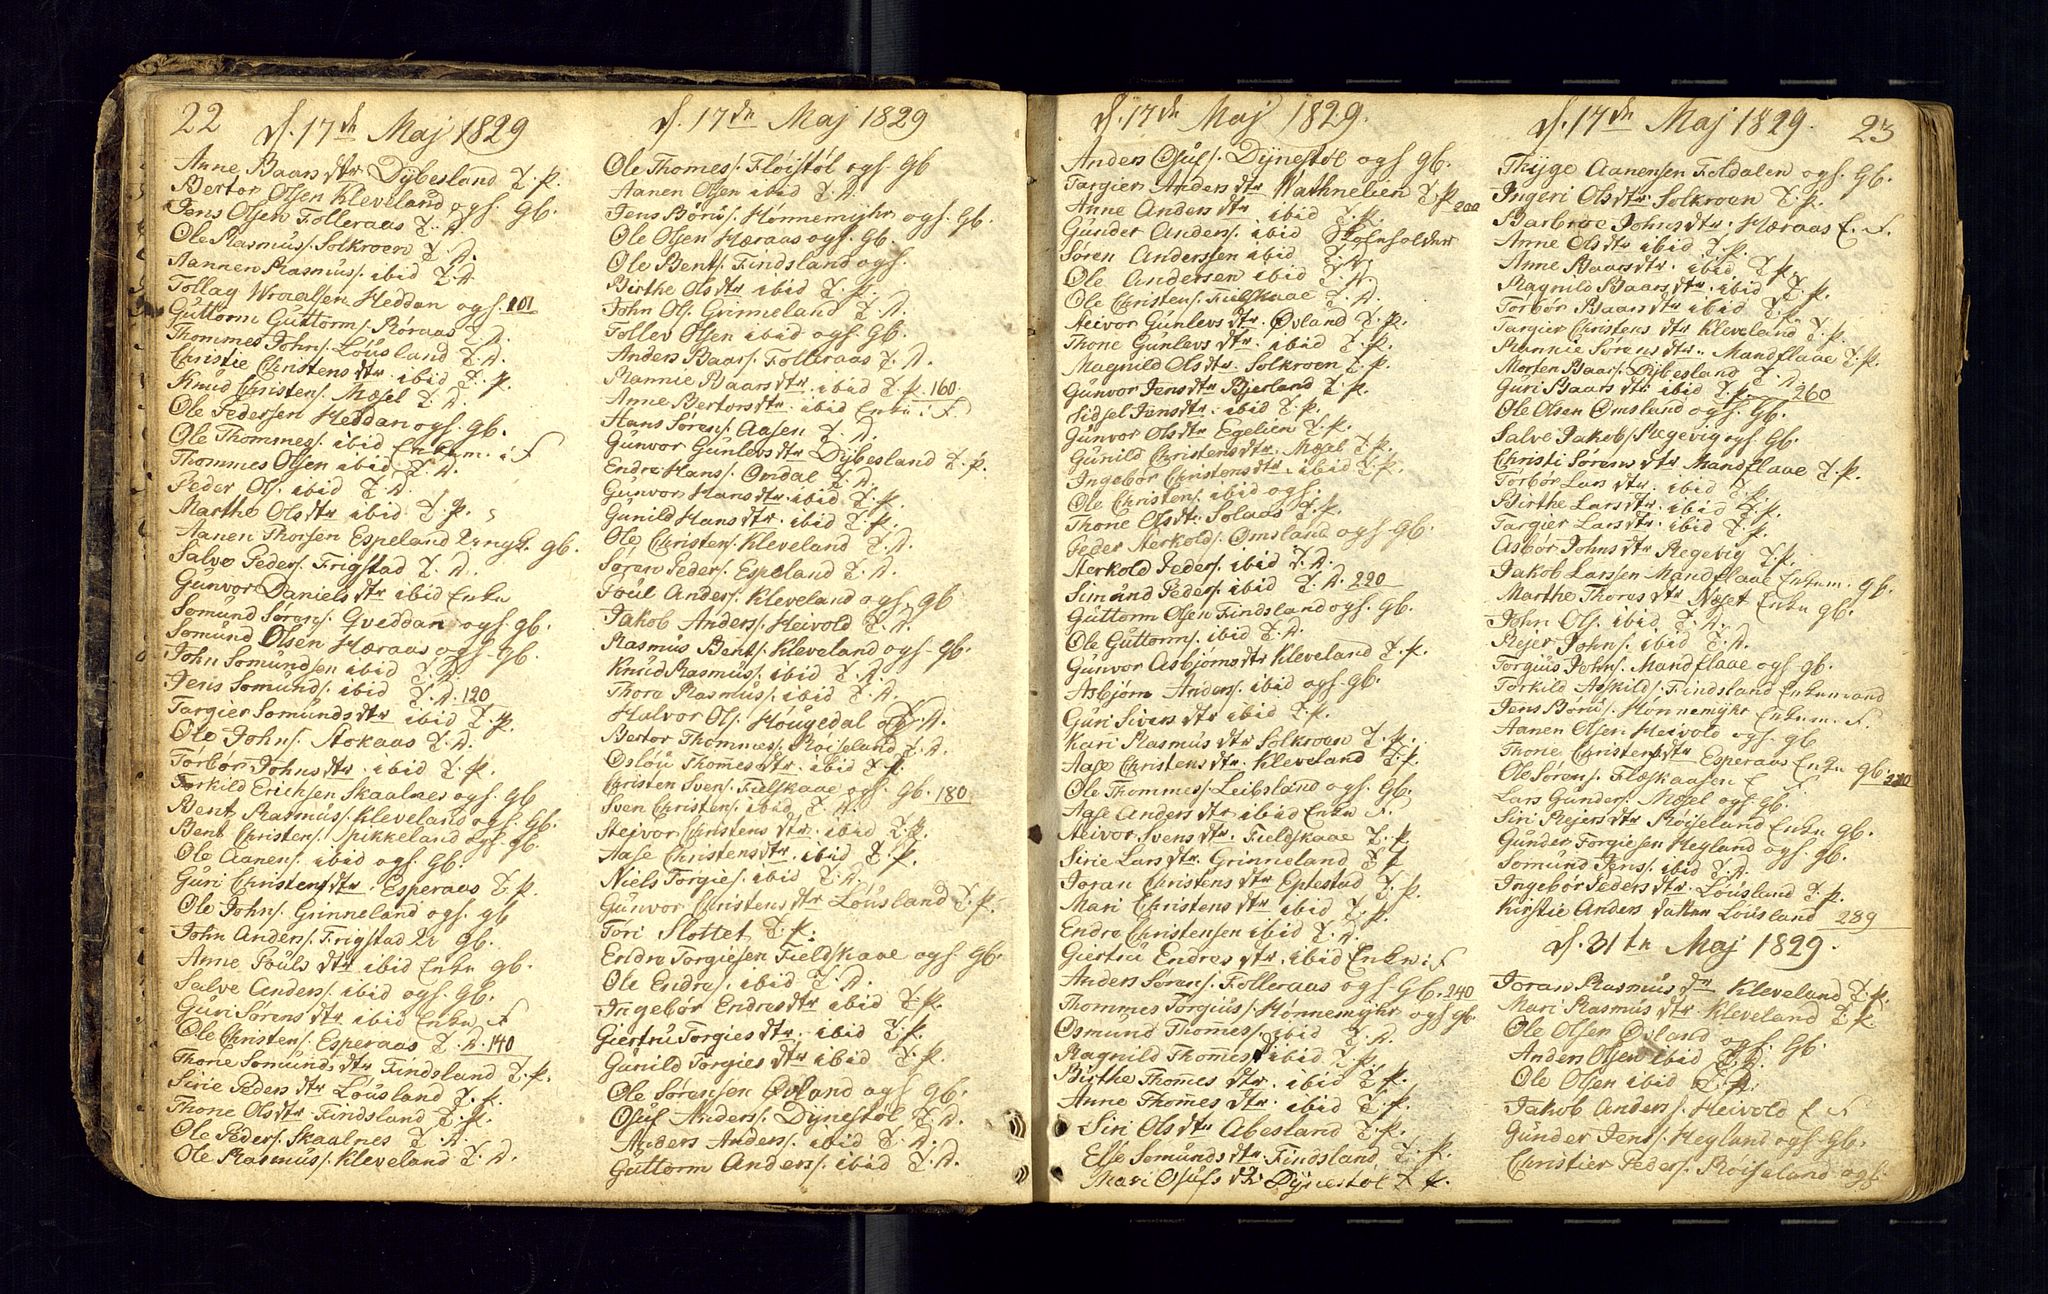 22
d. 17de Maj 1829
Anne Baarsdtr Dybesland T. P.
Bertor Olsen Kleveland ogs. Gb.
Jens Olsen Folleraas T. D.
Ole Rasmus/. Solkroen T. D.
Aannen Rasmus/. ibid T. D.
Tollag Wroalsen Heddan ogs. 101
Guttorm Guttorms/. Røraas T. D.
Thommes Johns/. Løusland T. D.
Christie Christensdtr ibid T. P.
Knud Christens/. Mæsel T. D.
Ole Pedersen Heddan ogs. Gb.
Ole Thommes/. ibid Enkem. i F
Thommes Olsen ibid T. D.
Peder Ols. ibid T. D.
Marthe Olsdtr ibid T. P.
Aanen Thorsen Espeland Gb.
Salve Peders/. Frigstad T. D.
Gunvor Danielsdtr ibid Enke
Somund Sørens/. Gveddan ogs. Gb.
Somund Olsen Hæraas ogs. Gb.
John Somundsen ibid T. D.
Jens Somunds/. ibid T. D. 120
Targier Somundsdtr ibid T. P.
Ole Johns/. Stokaas T. D.
Torbør Johnsdtr ibid T. P.
Torkild Erichsen Skaalnes ogs. Gb
Bent Rasmus/. Kleveland ogs. Gb.
Bent Christens/. Spikkeland ogs. Gb.
Ole Aanens/. ibid ogs. Gb.
Guri Christensdtr Esperaas T. P.
Ole Johns/. Grinneland ogs. Gb
John Anders/. Frigstad Gb.
Anne Pouls dtr ibid Enke Gb.
Salve Anders/. ibid ogs. Gb.
Guri Sørensdtr ibid Enke F
Ole Christens/. Esperaas T. D. 140
Thone Somundsdtr Findsland T. P.
Sirie Pedersdtr Løusland T. P.
Thone Olsdtr Findsland T. P.
Ole Peders/. Skaalnes T. D.
Ole Rasmus/. Kleveland T. D.
d. 17de Maj 1829
Ole Thomes/. Fløistøl ogs. Gb
Aanen Olsen ibid T. D.
Jens Børus/. Hønnemyhr ogs. Gb.
Ole Olsen Hæraas ogs. Gb.
Ole Bents/. Findsland ogs.
Birthe Olsdtr ibid T. P.
John Ols/. Grinneland T. D.
Tollev Olsen ibid ogs. Gb.
Anders Baars/. Folleraas T. D.
Rannie Baarsdtr. ibid T. P. 160
Anne Bertorsdtr. ibid Enke i F
Hans Sørens/. Aasen T. D.
Gunvor Gunlevsdtr Dybesland T. P.
Endre Hans/. Omdal T. D.
Gunvor Hansdtr. ibid T. P.
Gunild Hansdtr. ibid T. P.
Ole Christens/. Kleveland T. D.
Søren Peders/. Espeland T. D.
Poul Anders/. Kleveland ogs. Gb
Jakob Anders/. Heivold T. D.
Rasmus Bents/. Kleveland ogs. Gb.
Knud Rasmus/. ibid T. D.
Thore Rasmus/. ibid T. D.
Halvor Ols/. Høugedal T. D.
Bertor Thommes/. Røiseland T. D.
Osløu Thomesdtr. ibid T. P.
Christen Svens/. Fielskaae ogs. Gb. 180
Sven Christens/. ibid T. D.
Heivor Christensdtr. ibid T. P.
Aase Christensdtr. ibid T. P.
Niels Torgies/. ibid T. D.
Gunvor Christensdtr Løusland T. P.
Tori Slottet T. P.
Endre Torgiesen Fieldskaae ogs. Gb.
Ole Endres/. ibid T. D.
Ingebør Endresdtr ibid T. P.
Giertru Torgiesdtr. ibid T. P.
Gunild Torgiesdtr ibid T. P.
Ole Sørensen Øvland ogs Gb.
Osuf Anders/. Dynestøl T. D.
Anders Anders/. ibid T. D.
Guttorm Anders/. ibid T. D.
d. 17de Maj 1829.
Anders Osufs/. Dynestøl ogs. Gb.
Targier Andersdtr Vathnelien T. P. 200
Anne Andersdtr. ibid T. P.
Gunder Anders/. ibid Skoleholder
Søren Anderssen ibid T. D.
Ole Andersen ibid T. D.
Ole Christens/. Fielskaae T. D.
Heivor Gunlevsdtr. Øvland T. P.
Thone Gunlevsdtr. ibid T. P.
Magnild Olsdtr. Solkroen T. P.
Gunvor Jensdtr Bjerland T. P.
Sidsel Jensdtr. ibid T. P.
Gunvor Olsdtr Egelien T. P.
Gunild Christensdtr. Mæsel T. P.
Ingebør Christensdtr. ibid T. P.
Ole Christens/. ibid ogs.
Thone Olsdtr. Solaas T. P.
Peder Herkolds/. Omsland ogs. Gb.
Herkold Peders/. ibid T. D.
Simund Peders/. ibid T. D. 220
Guttorm Olsen Findsland ogs. Gb.
Ole Guttorms/. ibid T. D.
Gunvor Asbjørnsdtr Kleveland T. P.
Asbjørn Anders/. ibid ogs. Gb.
Guri Siversdtr ibid T. P.
Kari Rasmusdtr Solkroen T. P.
Aase Christensdtr. Kleveland T. P.
Ole Thommes/. Leibsland ogs. Gb.
Aase Andersdtr ibid Enke F.
Heivor Svensdtr. Fieldskaae T. P.
Sirie Larsdtr. Grinneland T. P
Joran Christensdtr Eptestad T. P.
Mari Christensdtr ibid T. P.
Endre Christensen ibid T. D.
Giertru Endresdtr. ibid Enke i F
Anders Sørens/. Folleraas ogs Gb. 240
Thommes Torgius/. Hønnemyhr ogs Gb.
Osmund Thomes/. ibid T. D.
Ragnild Thomesd ibid T. P.
Birthe Thomesdtr. ibid T. P.
Anne Thomesdtr. ibid T. P.
Siri Olsdtr Abesland T. P.
Else Somundsdtr. Findsland T. P.
Mari Osufsdtr Dynestøl T. P.
d. 17de Maj 1829.
23
Thyge Aanensen Feldalen ogs. Gb.
Ingeri Olsdtr. Solkroen T. P.
Barbroe Johnsdtr. Hæraas E. F.
Anne Olsdtr ibid T. P.
Anne Baarsdtr. ibid T. P.
Magnild Baarsdtr. ibid T. P.
Torbør Baarsdtr ibid T. P.
Targier Christensdtr Kleveland T. P.
Rannie Sørensdtr. Mandflaae T. P.
Morten Baars/. Dybesland T. D.
Guri Baarsdtr ibid T. P. 260
Ole Olsen Omsland ogs. Gb.
Salve Jakobs/. Regevig ogs. Gb.
Christi Sørensdtr Mandflaae T. P.
Torbør Larsdtr. ibid T. P.
Birthe Larsdtr. ibid T. P.
Targier Larsdtr. ibid T. P.
Asbør Johnsdtr Regevig T. P.
Jakob Larssen Mandflaae Enkem. Gb.
Marthe Thoresdtr Nøset Enke Gb.
John Ols/. ibid T. D.
Rejer Johns/. ibid T. D.
Torgius Johns/. Mandflaae ogs. Gb.
Torkild Askilds/. Findsland Enkemand
Jens Børus/. Hønnemyhr Enkem. F.
Aanen Olsen Heivold ogs. Gb
Thone Christensdtr Esperaas Enke Gb. 280
Ole Sørens/. Flæskaasen E F.
Lars Gunders/. Mæsel ogs. Gb.
Siri Rejersdtr Røiseland Enke Gb.
Gunder Torgiesen Hegland ogs. Gb.
Somund Jens/. ibid T. D.
Ingebør Pedersdtr. Løusland T. P.
Kirstie Anders datter Løusland 289
d. 31te Maj 1829.
Joran Rasmusdtr Kleveland T. P.
Mari Rasmusdtr. Kleveland T. P.
Ole Olsen Øvland ogs. Gb.
Anders Olsen ibid T. D.
Ole Olsen ibid T. D.
Jakob Anders/. Heivold E F
Gunder Jens/. Hegland ogs. Gb.
Christier Peders/. Røiseland ogs